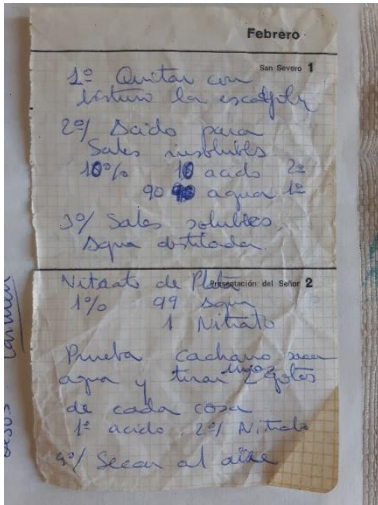 Febrero
San Severo 1
1º Quitar con
bisturí la
2º/ Acido para
Sales insolubles
10% 10 acido 2º
90 agua 1º
3º/ Sales solubles,
Agua destilada
Nitrato de Plata
Presentación del Señor 2
1% 99 agua
1 Nitrato
Prueba cacharro sacar
agua y tirar 2 gotas
de cada cosa
1º acido, 2º/ Nitrato
4º/ Secar al aire